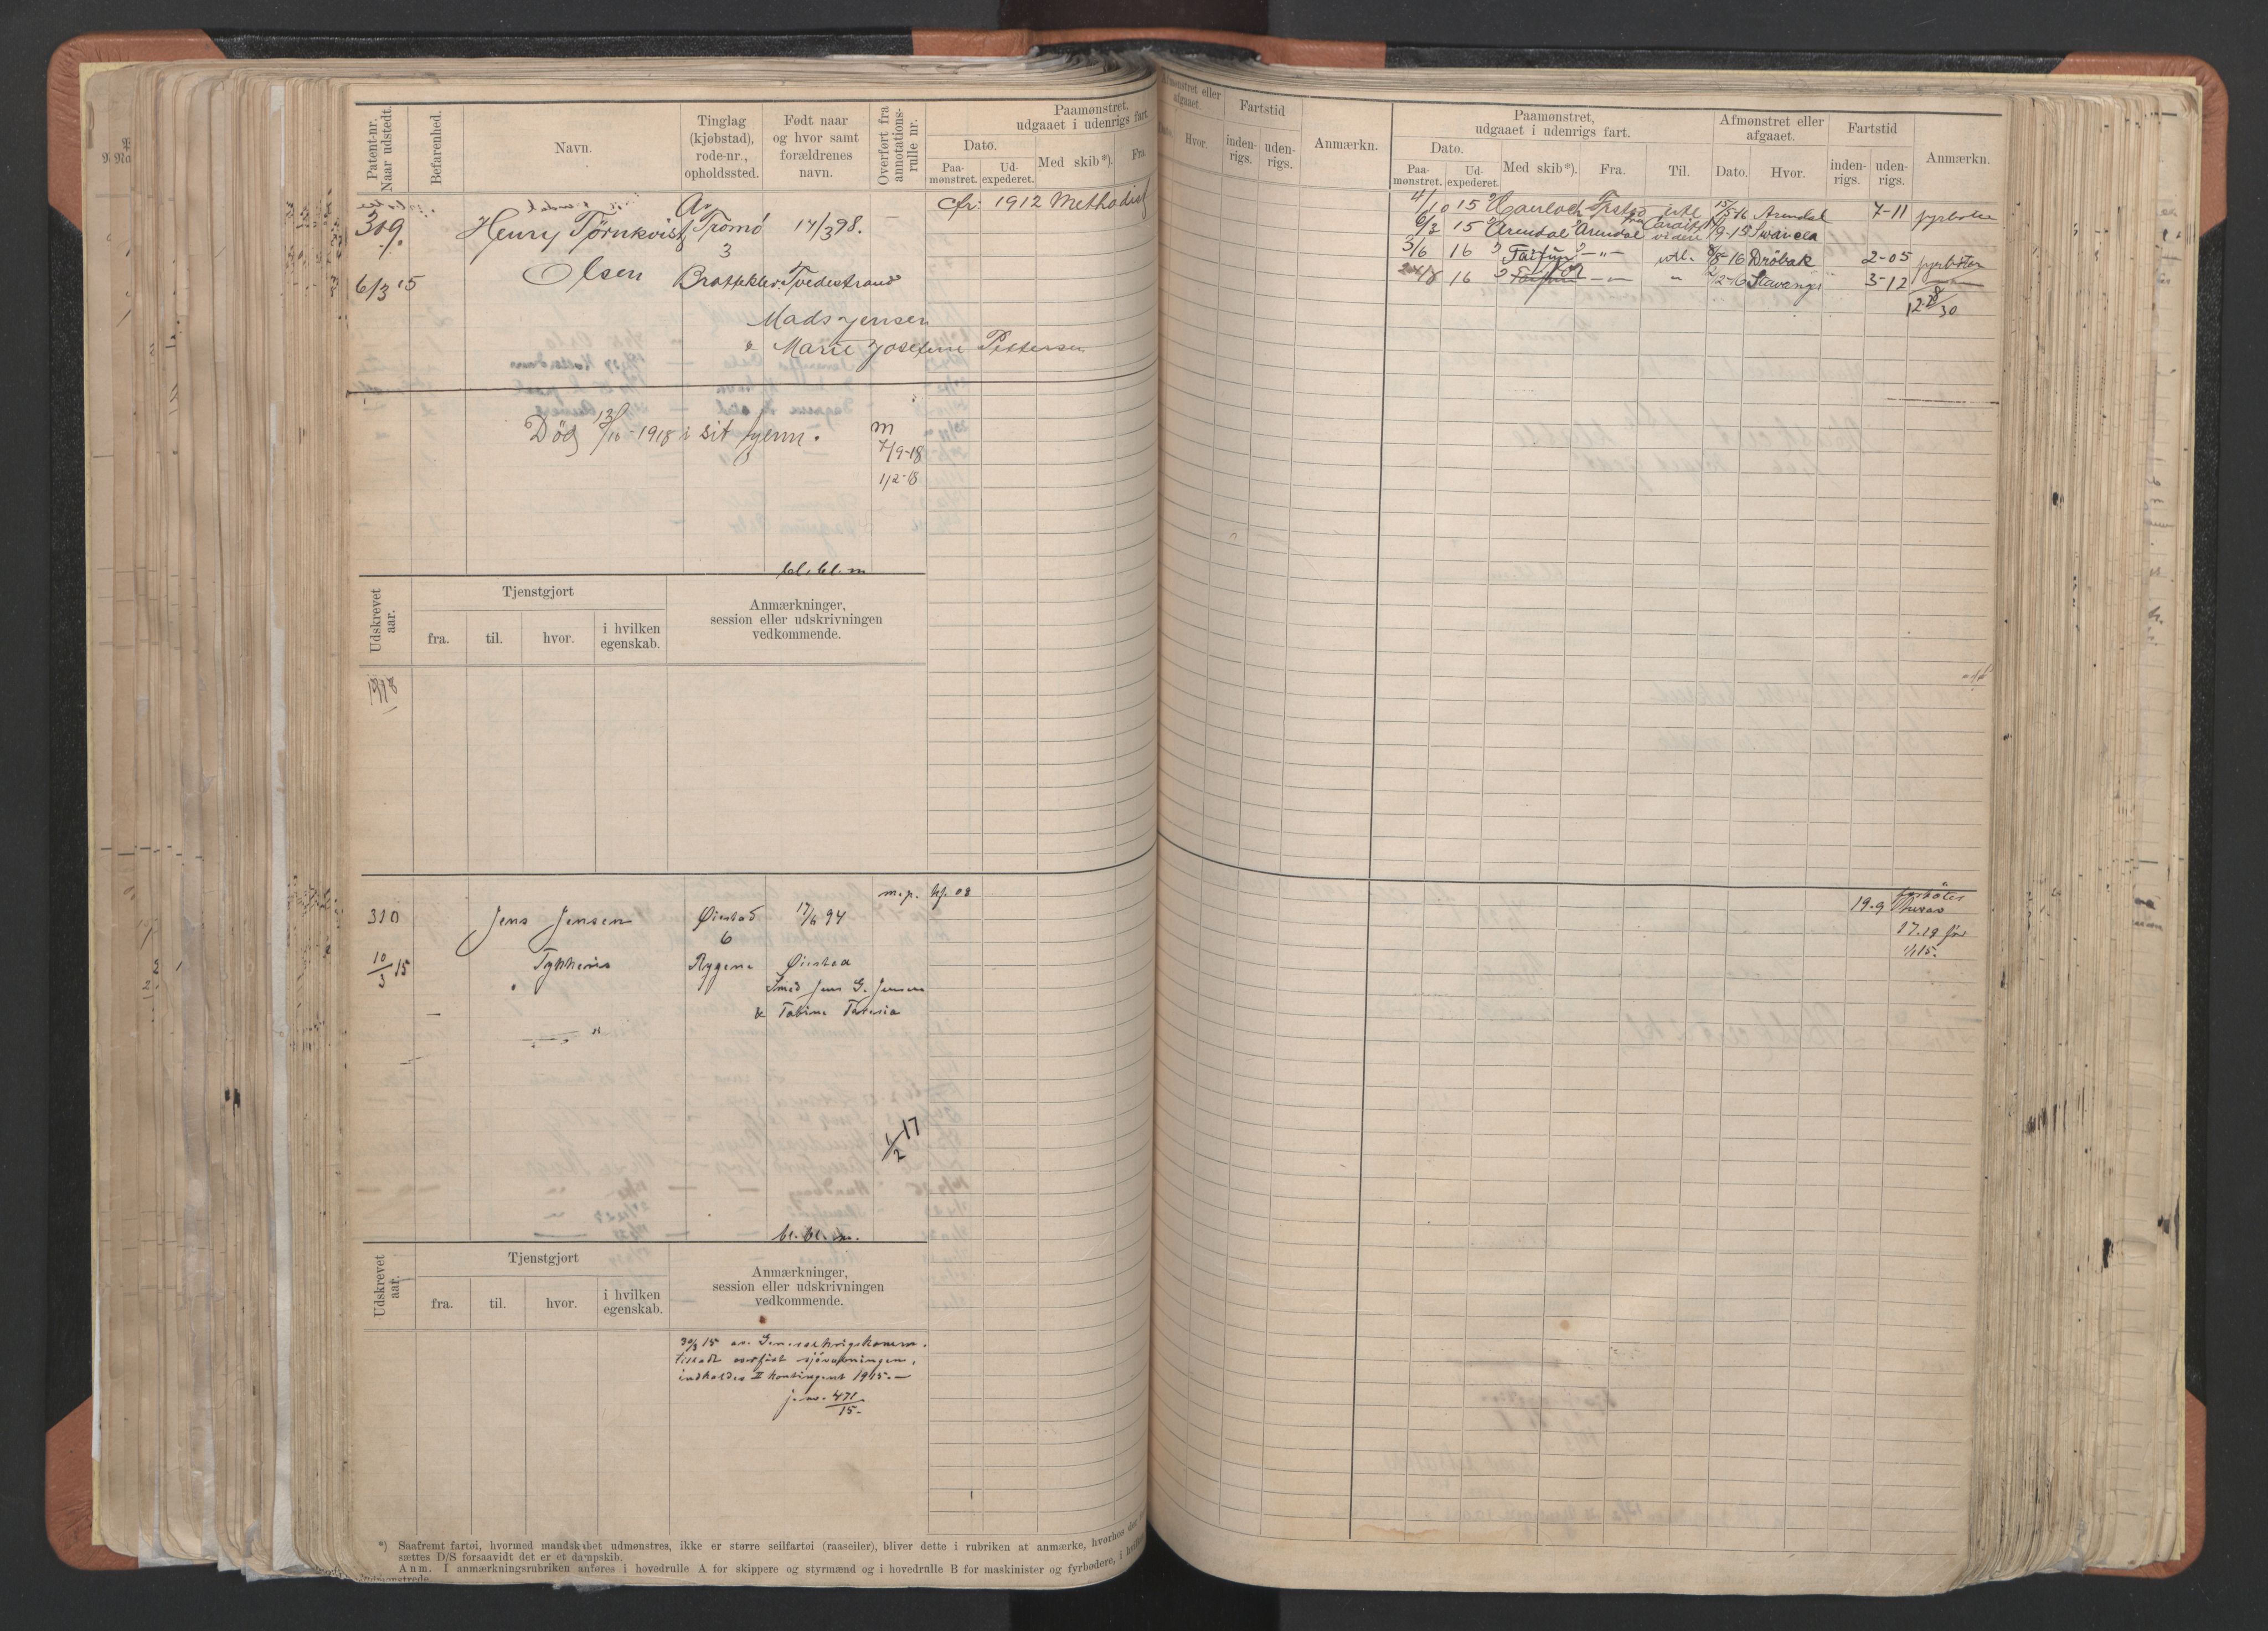 Patent-nr. Naar udstedt.
Befarenhed.
Navn.
Tinglag (kjøbstad), rode-nr., opholdssted.
Født naar og hvor samt forældrenes navn.
Overført fra annotations-rulle nr.
Paamønstret, udgaaet i udenrigs fart
Dato.
Paa-mønstret.
Ud-expederet.
Med skib*).
Fra
309.
Henry Törnkvist
Tromö
14/3 98.
cfr. 1912 Methodist
3
6/3 15
Olsen
Brattekler
Tvedestrand
Mads Jensen
& Marie Josefine Pettersen
Död 13/10-1918 i sit hjem.
m
7/9-18
1/2-18
bl. bl. m
Udskrevet aar.
Tjenstgjort
fra.
til.
hvor.
i hvilken egenskab.
Anmærkninger, session eller udskrivningen vedkommende.
1918
m.p. hf. 08
310
Jens Jensen
Øiestad
17/6 94
6
10/3 15
Rygene
Øiestad
Smed Jens G. Jensen
& Tobine
1/2 17
bl. bl. m.
Udskrevet aar.
Tjenstgjort
fra.
til.
hvor.
i hvilken egenskab.
Anmærkninger, session eller udskrivningen vedkommende.
30/3 15 av
tilladt
indkaldes II kontingent 1915.—
j.nr. 471/15.
*) Saafremt fartøi, hvormed mandskabet udmønstres, ikke er større seilfartøi (raaseiler), bliver dette i rubriken at anmærke, hvorhos der
sættes D/S forsaavidt det er et dampskib.
Anm. I anmærkningsrubriken anføres i hovedrulle A for skippere og styrmænd og i hovedrulle B for maskinister og fyrbødere, i
Afmønstret eller afgaaet.
Hvor.
Fartstid
inden-rigs.
uden-rigs.
Anmærkn.
Paamønstret, udgaaet i udenrigs fart.
Dato.
Paa-mønstret.
Ud-expederet.
Med skib*).
Fra.
Til.
Afmønstret eller afgaaet.
Dato.
Hvor.
Fartstid
inden-rigs.
uden-rigs.
Anmærkn.
4/10 15 Havlock
15/5-16 Arendal 7-11 fyrböter
6/3 15 Arendal Arendal Cardiff videre 11/9-15 Swansea
3/6 16 Taifun —„— utl. 8/8-16 Dröbak 2-05 fyrböter
18 16 Stavanger 3-12
12.28/30
19.9
17.19 för
1/1 15.